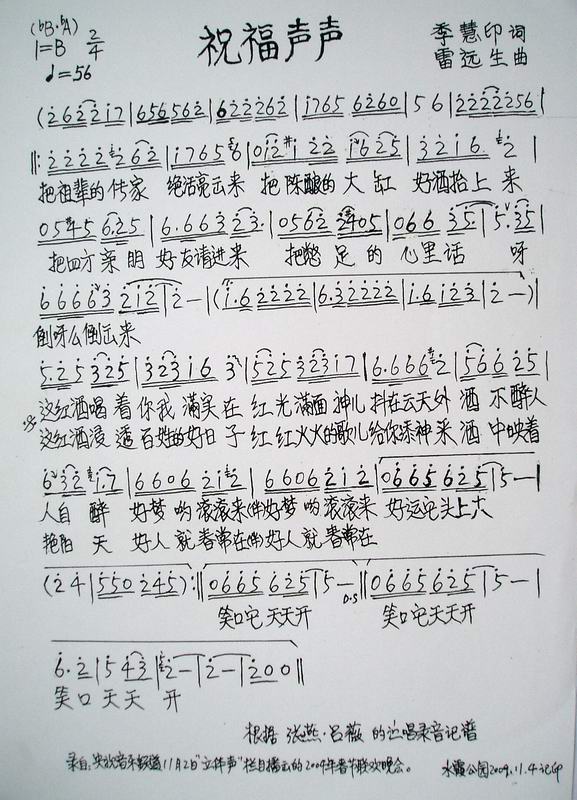 (bB·bA)
1=B 2/4
♩=56
祝福声声
季慧印 词
雷远生 曲
(262217|656562|622262|1765 6260|5 6|2222256|
‖:2222262|17656|0121 22 1625|3216. 2|
把祖辈的传家 绝活亮出来 把陈酿的大缸 好酒抬上来
0545 6.25|6.66323.|0562 2405|066 35|5.35|
把四方亲朋好友请进来 把憋足的心里话 呀
666663 212|2-|(1.6 2222|6.32222|1.6123|2-)|
倒呀么倒出来
5.25325|32316 3|52532317|6.6662|56625|
这红酒唱着你我满实在 红光满面神儿抖在云天外 酒不醉人
这红酒浸透百姓的好日子 红红火火的歌儿给你添神采 酒中映着
632 1.7|6606 212|6606212|0665625|5-|
人自醉 好梦哟滚滚来(伴)好梦哟滚滚来 好运当头上大
艳阳天 好人就春常在(伴)好人就春常在
(24|550 245):‖0665 625|5-‖0665625|5-|
D.S
笑口它天天开 笑口它天天开
6.2|543|2-|2-|200‖
笑口天天开
根据 张燕·吕薇 的演唱录音记谱
录自:央放音乐频道11月2日"立体声"栏目播出的2009年春节联欢晚会。
水霞公园2009.11.4记印